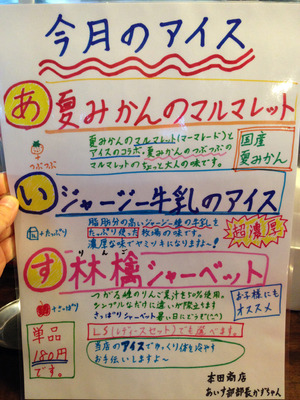 今月のアイス
あ 夏みかんのマルマレット
つぶつぶ
夏みかんのマルマレット(マーマレード)と
アイスのコラボ・夏みかんのつぶつぶの
マルマレットのちょっと大人の味です。
国産
夏みかん
い ジャージー牛乳のアイス
たっぷり
脂肪分の高いジャージー種の牛乳を
たっぷり使った牧場の味です。
濃厚な味でヤミツキになりますよ~!
超濃厚
りんご
す 林檎シャーベット
さっぱり
つがる種のりんご果汁を50%使用。
シンプルなだけに違いが際立ちます
さっぱりシャーベット暑い日にどうぞ(^^)
お子様にも
オススメ
LS(レディースセット)でも選べます。
単品
180円
です。
当店のアイスでゆっくり体を冷やす
お手伝いしますよ~
本田商店
あいす部部長かずちゃん